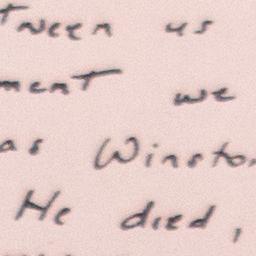 tween us
ment we
as Winsto
He died,